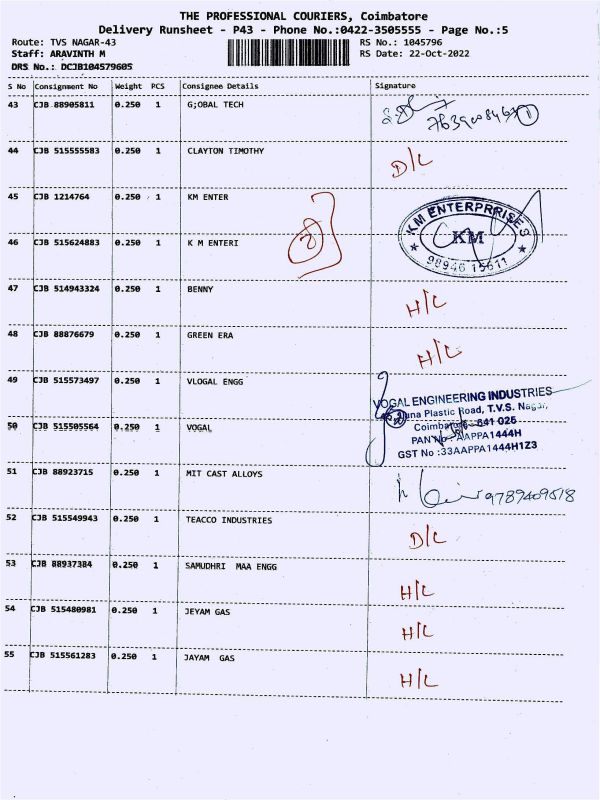 THE PROFESSIONAL COURIERS, Coimbatore
Delivery Runsheet - P43 - Phone No.:0422-3505555 - Page No.:5
Route: TVS NAGAR-43 RS No.: 1045796
Staff: ARAVINTH M RS Date: 22-Oct-2022
DRS No.: DCJB104579605
S No Consignment No Weight PCS Consignee Details Signature
43 CJB 88905811 0.250 1 G;OBAL TECH
44 CJB 515555583 0.250 1 CLAYTON TIMOTHY D/L
45 CJB 1214764 0.250 1 KM ENTER
KM ENTERPRRISES
KM
98946 15611
46 CJB 515624883 0.250 1 K M ENTERI
2
47 CJB 514943324 0.250 1 BENNY H/L
48 CJB 88876679 0.250 1 GREEN ERA H/L
49 CJB 515573497 0.250 1 VLOGAL ENGG
VOGAL ENGINEERING INDUSTRIES
Plastic Road, T.V.S. Nagar,
Coimbatore - 641 025
PAN No : AAPPA1444H
GST No :33AAPPA1444H1Z3
50 CJB 515505564 0.250 1 VOGAL
51 CJB 88923715 0.250 1 MIT CAST ALLOYS 9789409518
52 CJB 515549943 0.250 1 TEACCO INDUSTRIES D/L
53 CJB 88937384 0.250 1 SAMUDHRI MAA ENGG H/L
54 CJB 515480981 0.250 1 JEYAM GAS H/L
55 CJB 515561283 0.250 1 JAYAM GAS H/L